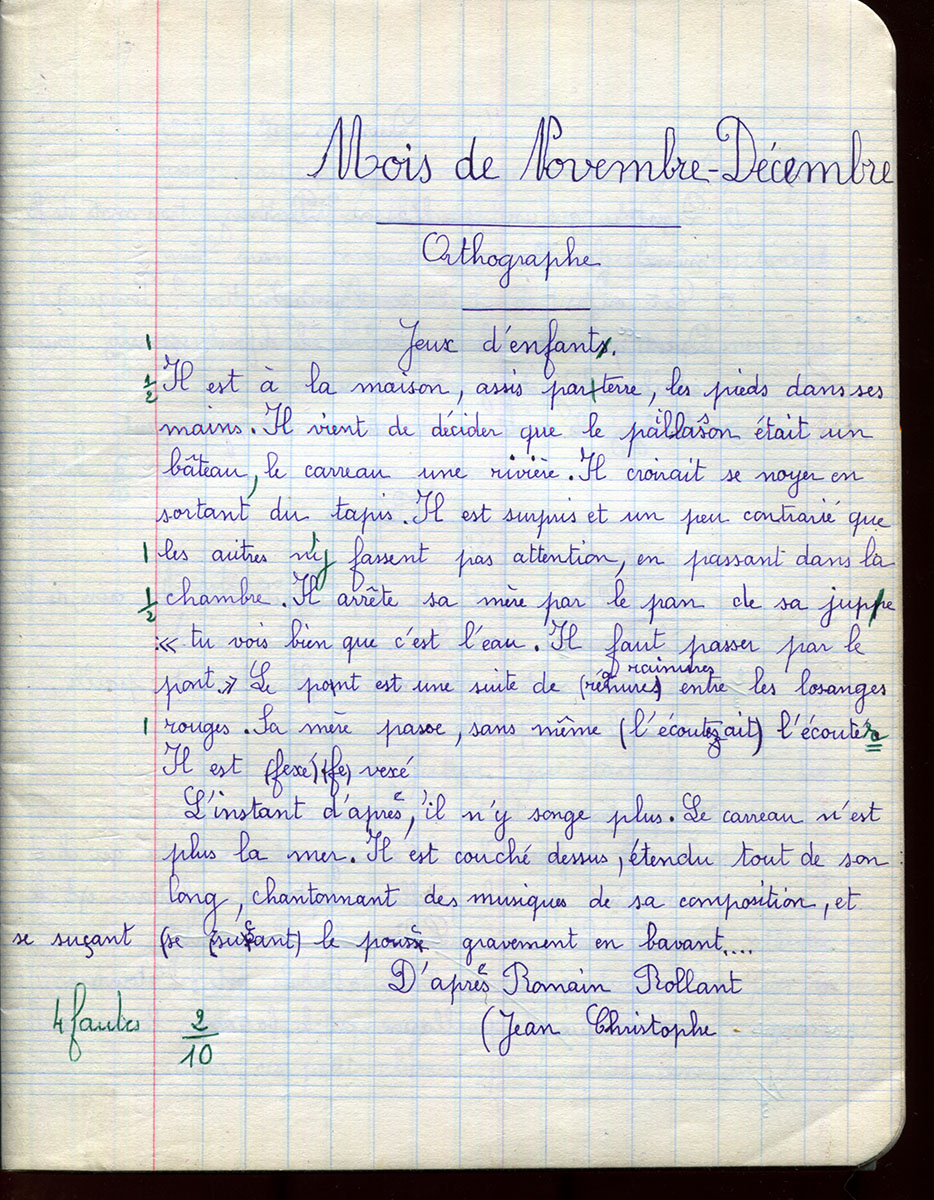 Mois de Novembre-Décembre
Orthographe
1 Jeux d'enfants.
1/2 Il est à la maison, assis par terre, les pieds dans ses
mains. Il vient de décider que le paillasson était un
bâteau, le carreau une rivière. Il croirait se noyer en
sortant du tapis. Il est surpris et un peu contrarié que
1 les autres n'y fassent pas attention, en passant dans la
1/2 chambre. Il arrête sa mère par le pan de sa juppe
: « tu vois bien que c'est l'eau. Il faut passer par le
rainures
pont. » Le pont est une suite de (rénures) entre les losanges
1 rouges. Sa mère passe, sans même (l'écoutezait) l'écouter
Il est (fexé) (fe) vexé
L'instant d'après, il n'y songe plus. Le carreau n'est
plus la mer. Il est couché dessus, étendu tout de son
long, chantonnant des musiques de sa composition, et
se suçant (se (suçant) le pouce gravement en bavant....
D'après Romain Rollant
4 fautes 2/10 (Jean Christophe